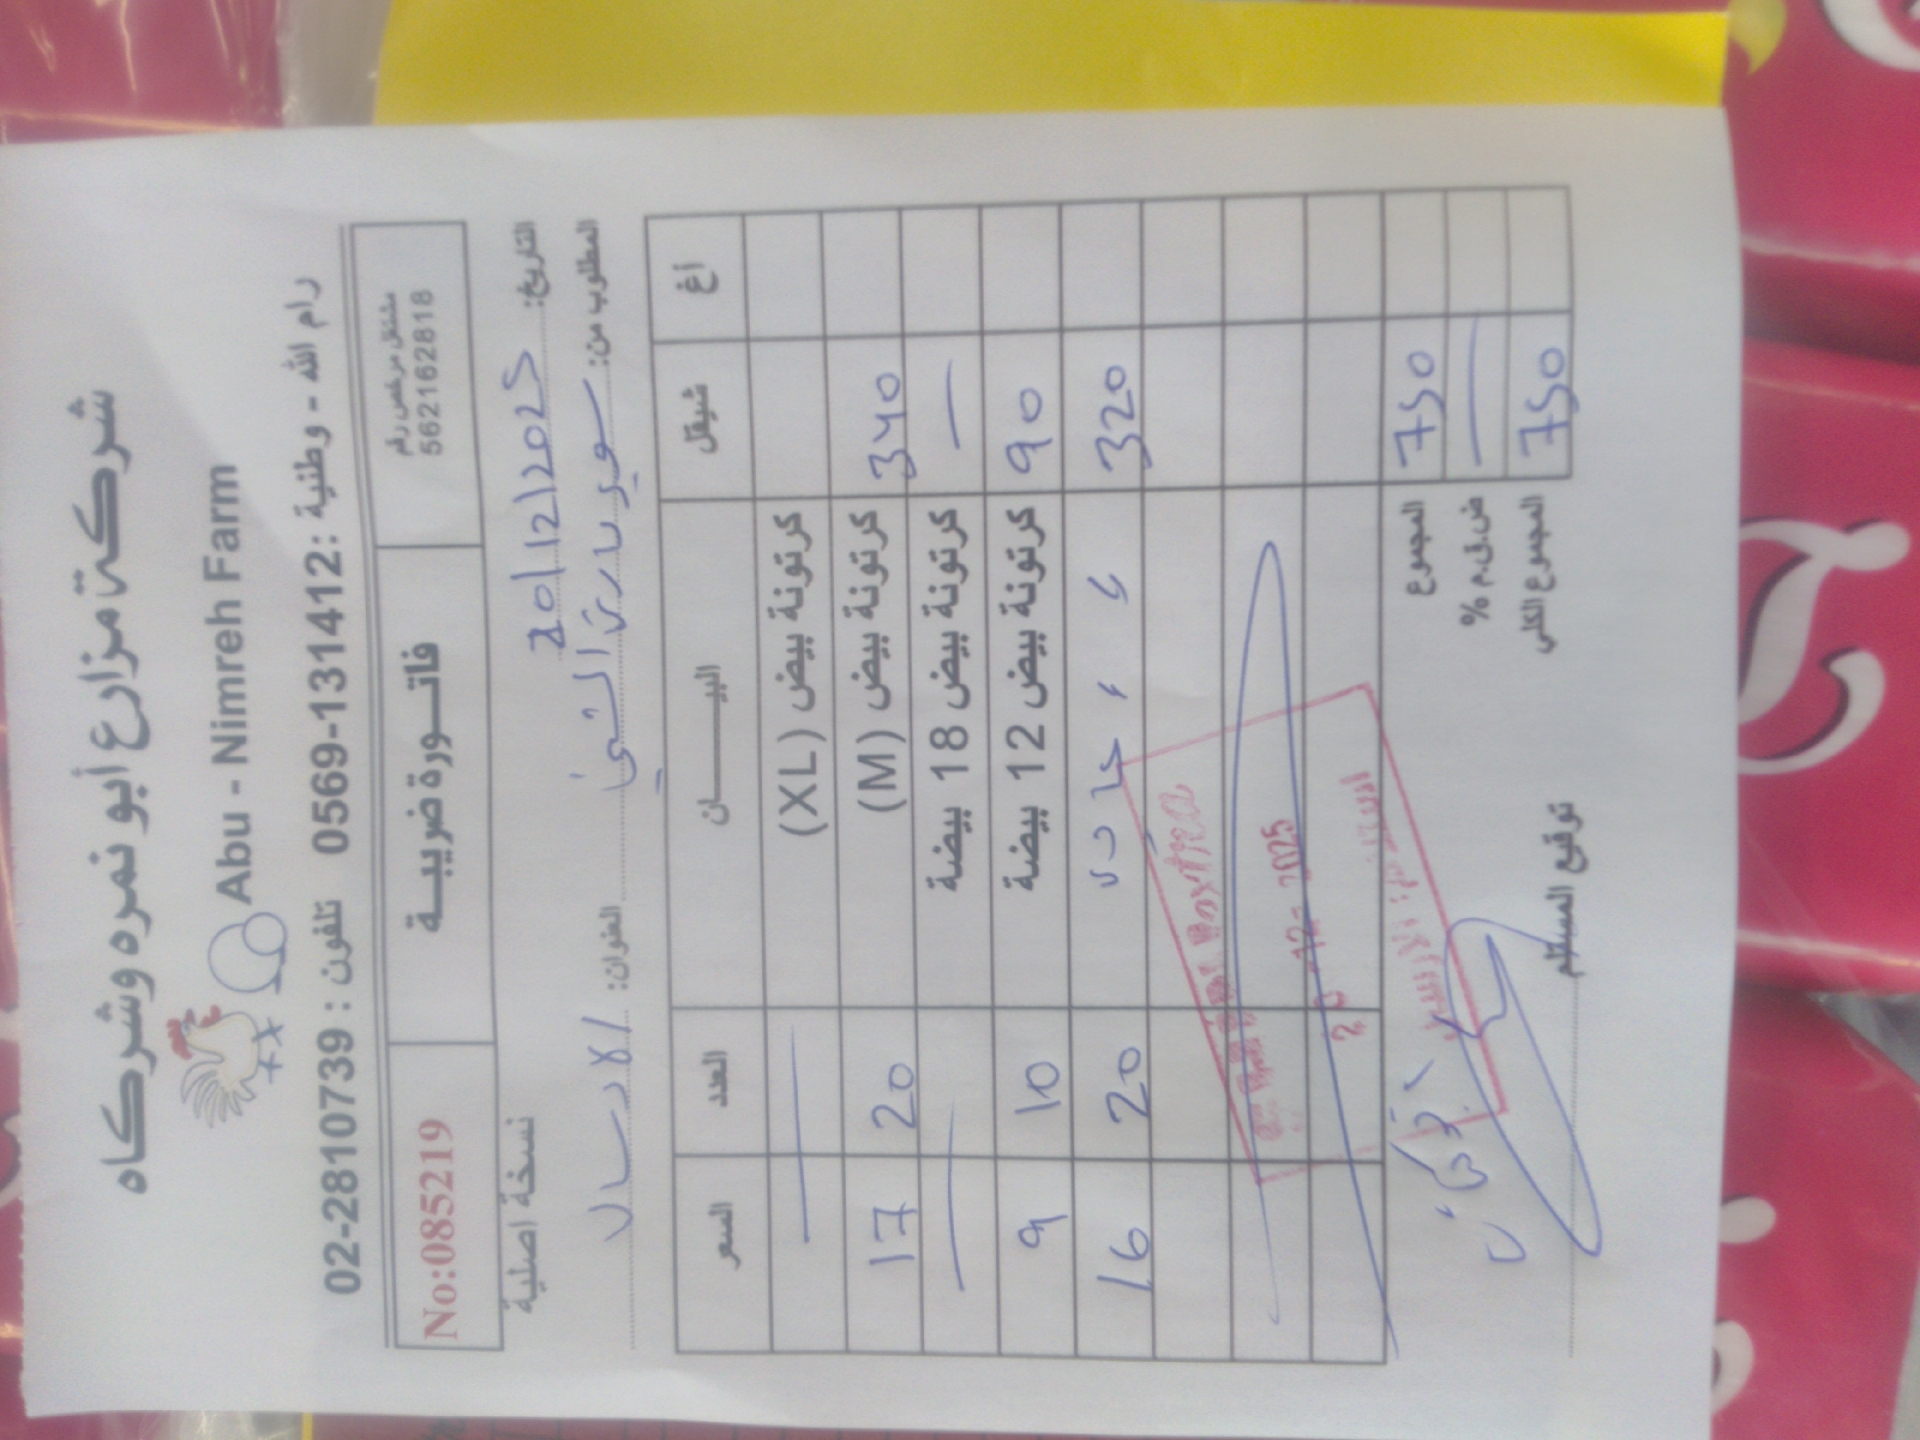 شركة مزارع أبو نمره وشركاه
Abu - Nimreh Farm
رام الله - وطنية : 0569-131412 تلفون : 02-2810739
مشتغل مرخص رقم
562162818
فاتـورة ضريبيـة
No:085219
التاريخ: 20/12/2025
نسخة اصلية
المطلوب من: سوبر ماركت
العنوان: الارسال
أغ شيقل البيـــــان العدد السعر
كرتونة بيض (XL)
340 كرتونة بيض (M) 20 17
كرتونة بيض 18 بيضة
90 كرتونة بيض 12 بيضة 10 9
320 20 16
20 -12- 2025
750 المجموع
ض.ق.م %
750 المجموع الكلي
توقيع المستلم